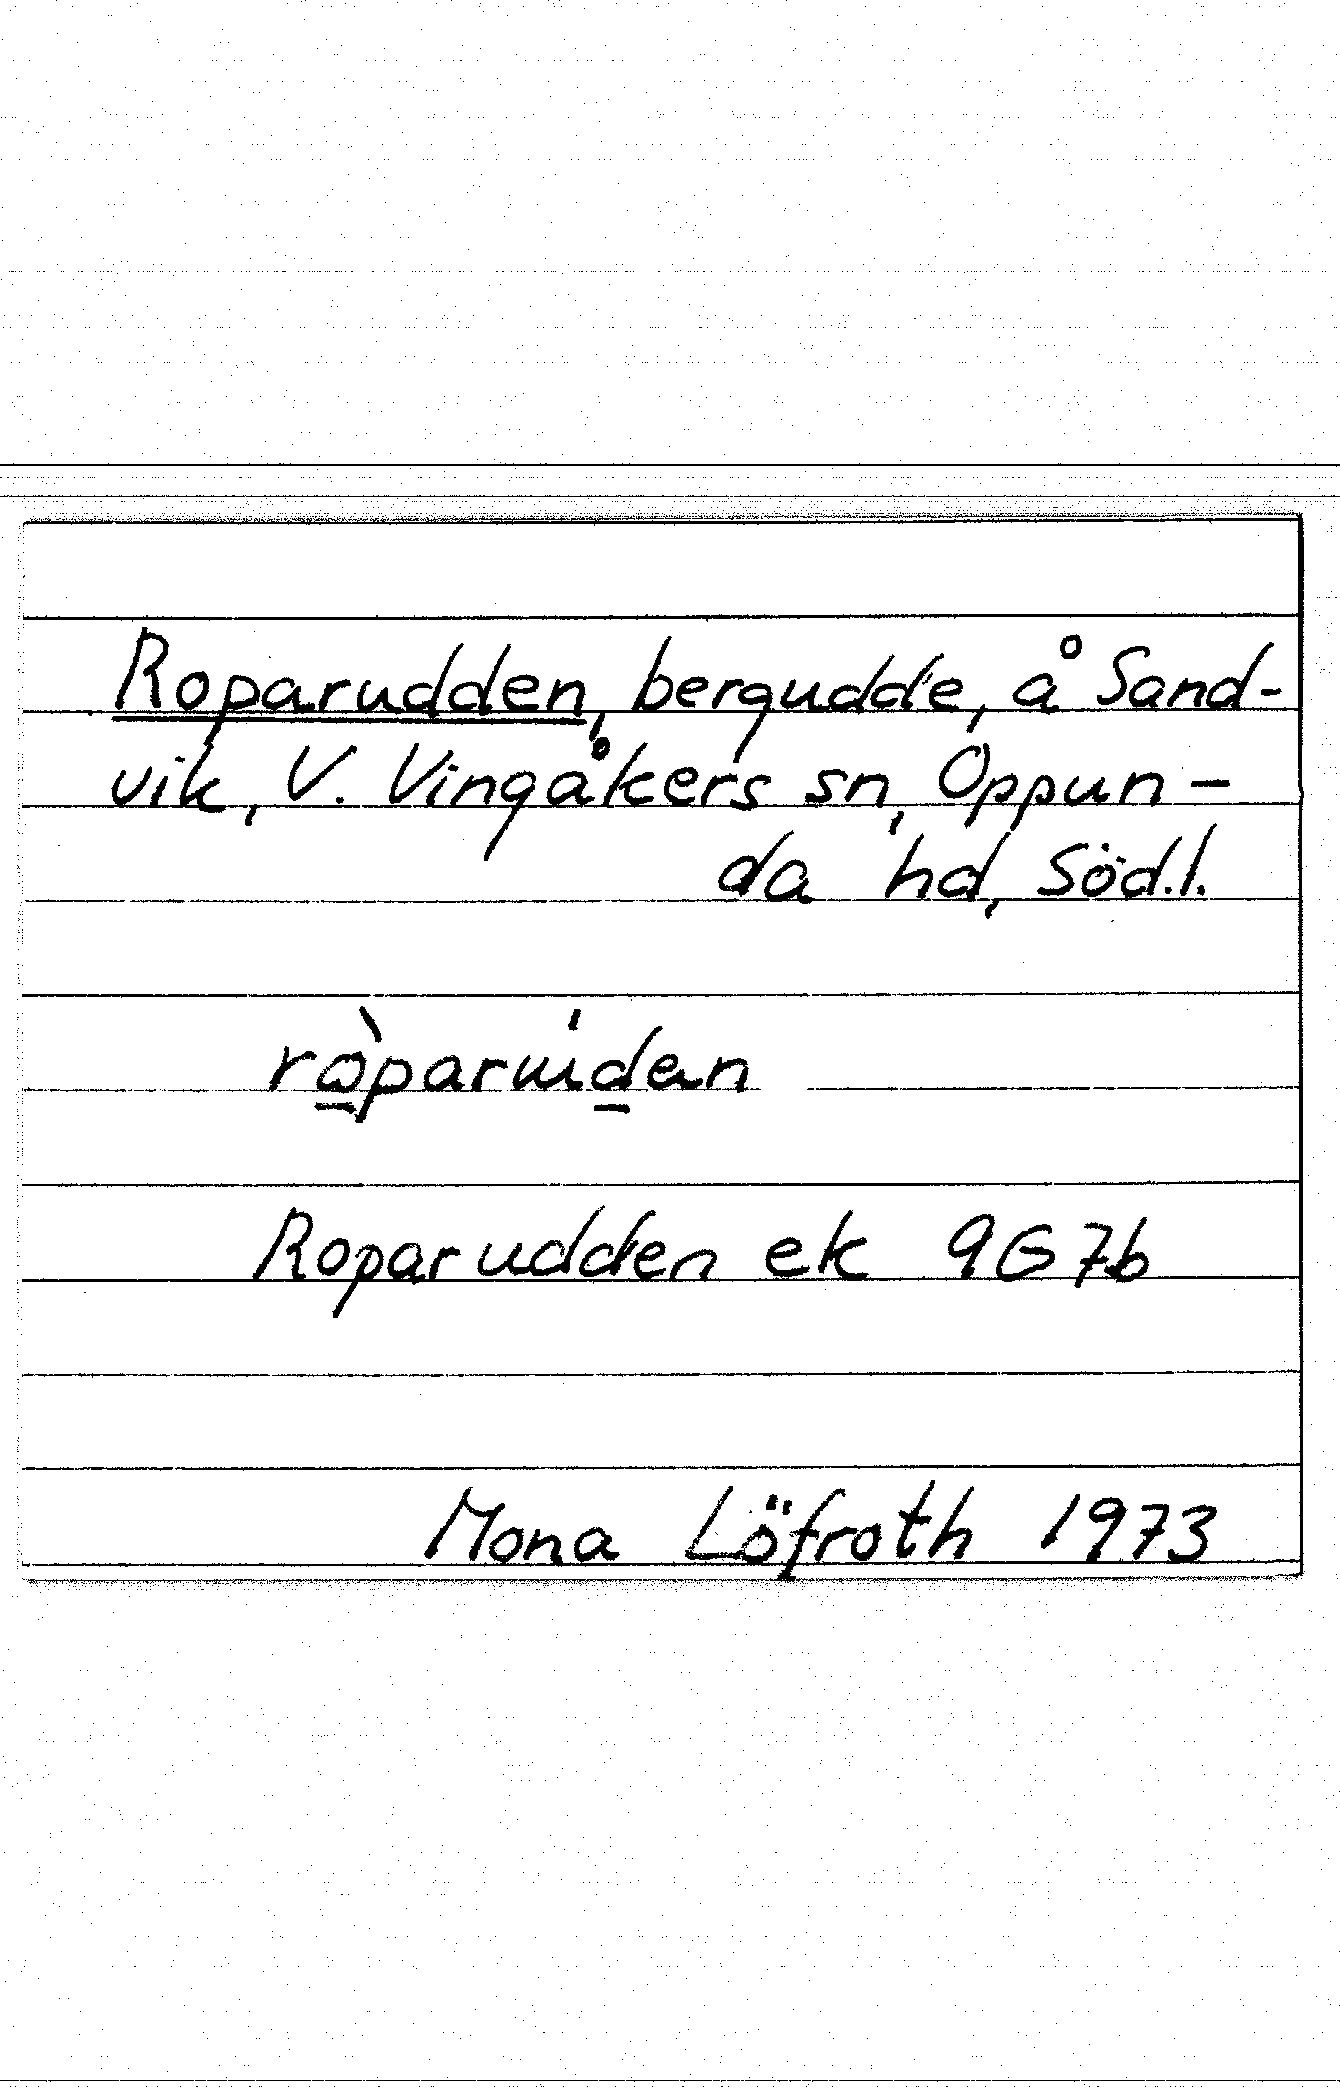 Roparudden, bergudde, å Sand-
vik, V. Vingåkers sn, Oppun-
da hd, Södl.l.
Roparudden ek 9G7b
Mona Löfroth 1973